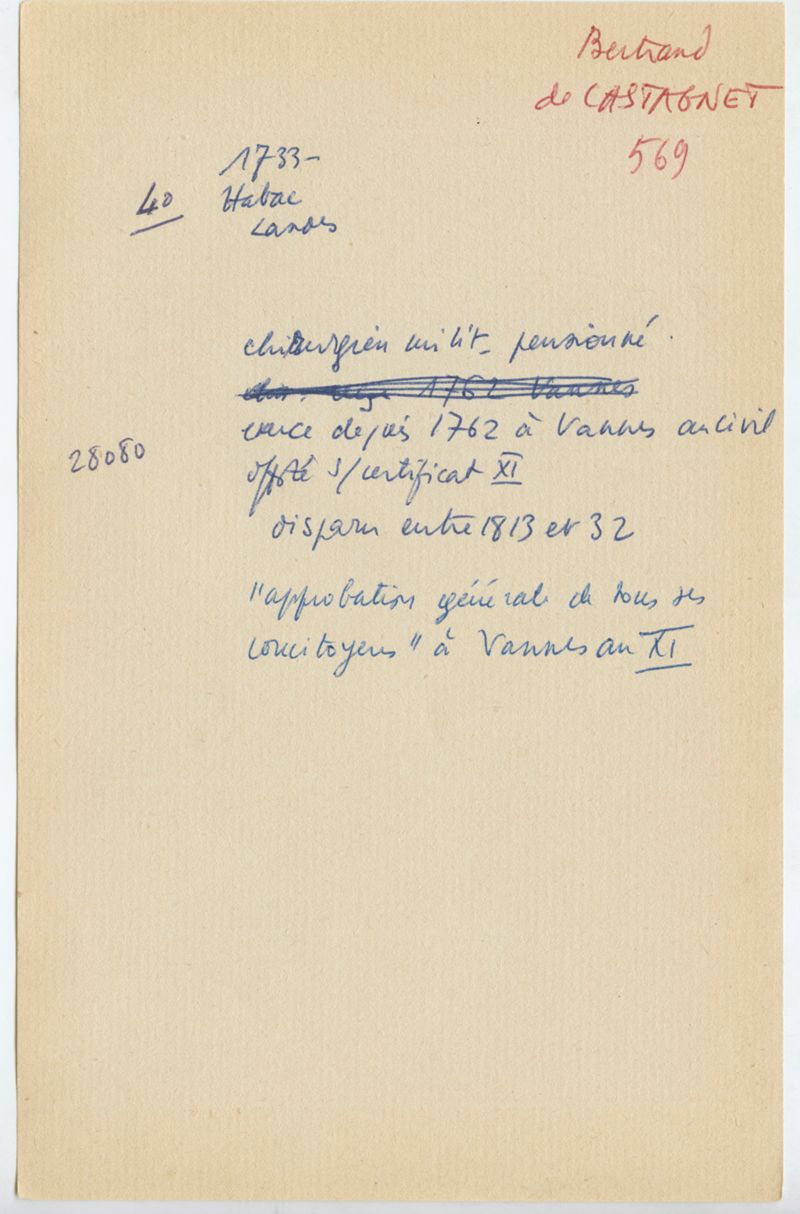 Bertrand
de CASTAGNET
569
1733-
40 Habac
Landes
chirurgien milit- pensionné.
1762 Vannes
exerce depuis 1762 à Vannes au civil
28080
s/certificat XI
disparu entre 1813 et 32
"approbation générale de tous ses
concitoyens" à Vannes an XI